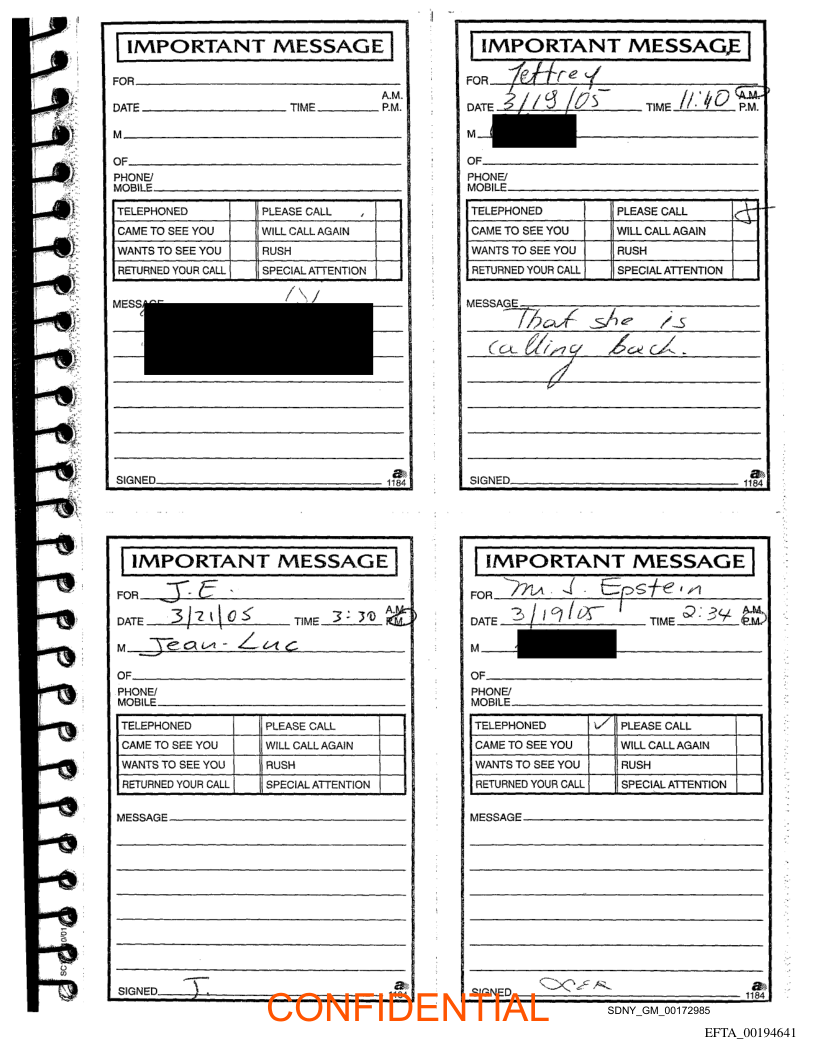 IMPORTANT MESSAGE
FOR
A.M.
DATE TIME P.M.
M
OF
PHONE/
MOBILE
TELEPHONED PLEASE CALL
CAME TO SEE YOU WILL CALL AGAIN
WANTS TO SEE YOU RUSH
RETURNED YOUR CALL SPECIAL ATTENTION
MESSAGE
SIGNED
1184
IMPORTANT MESSAGE
FOR Jeffrey
A.M.
DATE 3/19/05 TIME 11:40 P.M.
M
OF
PHONE/
MOBILE
TELEPHONED PLEASE CALL
CAME TO SEE YOU WILL CALL AGAIN
WANTS TO SEE YOU RUSH
RETURNED YOUR CALL SPECIAL ATTENTION
MESSAGE
That she is
calling back.
SIGNED
1184
IMPORTANT MESSAGE
FOR J.E.
A.M.
DATE 3/21/05 TIME 3:30 P.M.
M Jean-Luc
OF
PHONE/
MOBILE
TELEPHONED PLEASE CALL
CAME TO SEE YOU WILL CALL AGAIN
WANTS TO SEE YOU RUSH
RETURNED YOUR CALL SPECIAL ATTENTION
MESSAGE
SIGNED J.
1184
IMPORTANT MESSAGE
FOR Mr. J. Epstein
A.M.
DATE 3/19/05 TIME 2:34 P.M.
M
OF
PHONE/
MOBILE
TELEPHONED ✓ PLEASE CALL
CAME TO SEE YOU WILL CALL AGAIN
WANTS TO SEE YOU RUSH
RETURNED YOUR CALL SPECIAL ATTENTION
MESSAGE
SIGNED
1184
CONFIDENTIAL
SDNY_GM_00172985
EFTA_00194641